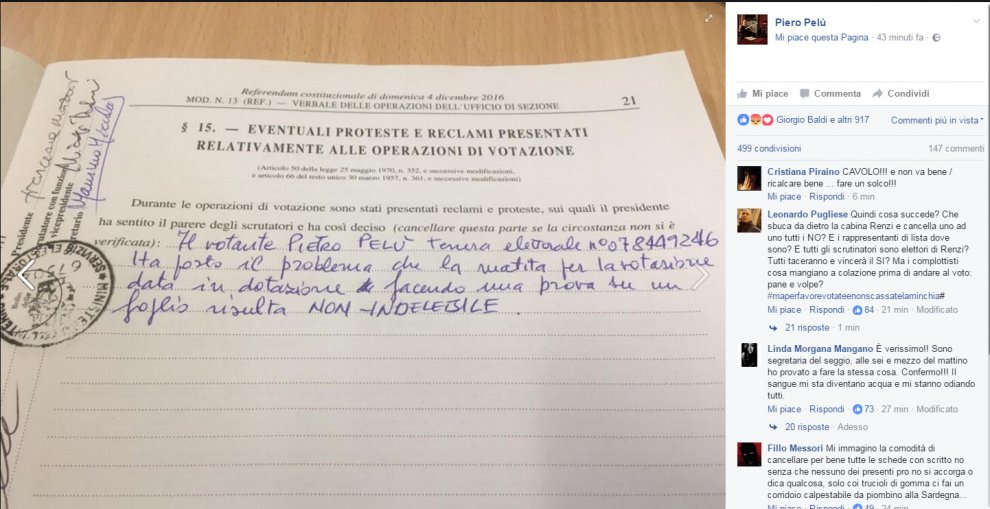 Referendum costituzionale di domenica 4 dicembre 2016
MOD. N. 13 (REF.) — VERBALE DELLE OPERAZIONI DELL'UFFICIO DI SEZIONE
21
§ 15. — EVENTUALI PROTESTE E RECLAMI PRESENTATI
RELATIVAMENTE ALLE OPERAZIONI DI VOTAZIONE
(Articolo 50 della legge 25 maggio 1970, n. 352, e successive modificazioni,
e articolo 66 del testo unico 30 marzo 1957, n. 361, e successive modificazioni)
Durante le operazioni di votazione sono stati presentati reclami e proteste, sui quali il presidente
ha sentito il parere degli scrutatori e ha così deciso (cancellare questa parte se la circostanza non si è
verificata): Il votante PIETRO PELU' tessera elettorale n° 078449246
Ha posto il problema che la matita per la votazione
data in dotazione facendo una prova su un
foglio risulta NON-INDELEBILE.
Piero Pelù
Mi piace questa Pagina · 43 minuti fa ·
Mi piace Commenta Condividi
Giorgio Baldi e altri 917 Commenti più in vista
499 condivisioni 147 commenti
Cristiana Piraino CAVOLO!!! e non va bene /
ricalcare bene ... fare un solco!!!
Mi piace · Rispondi · 6 min
Leonardo Pugliese Quindi cosa succede? Che
sbuca da dietro la cabina Renzi e cancella uno ad
uno tutti i NO? E i rappresentanti di lista dove
sono? E tutti gli scrutinatori sono elettori di Renzi?
Tutti taceranno e vincerà il SI? Ma i complottisti
cosa mangiano a colazione prima di andare al voto:
pane e volpe?
#maperfavorevoteenonscassatelaminchia#
Mi piace · Rispondi · 84 · 21 min · Modificato
21 risposte · 1 min
Linda Morgana Mangano È verissimo!! Sono
segretaria del seggio, alle sei e mezzo del mattino
ho provato a fare la stessa cosa. Confermo!!! Il
sangue mi sta diventano acqua e mi stanno odiando
tutti.
Mi piace · Rispondi · 73 · 27 min · Modificato
20 risposte · Adesso
Fillo Messori Mi immagino la comodità di
cancellare per bene tutte le schede con scritto no
senza che nessuno dei presenti pro no si accorga o
dica qualcosa, solo coi trucioli di gomma ci fai un
corridoio calpestabile da piombino alla Sardegna...
Mi piace · Rispondi · 49 · 24 min